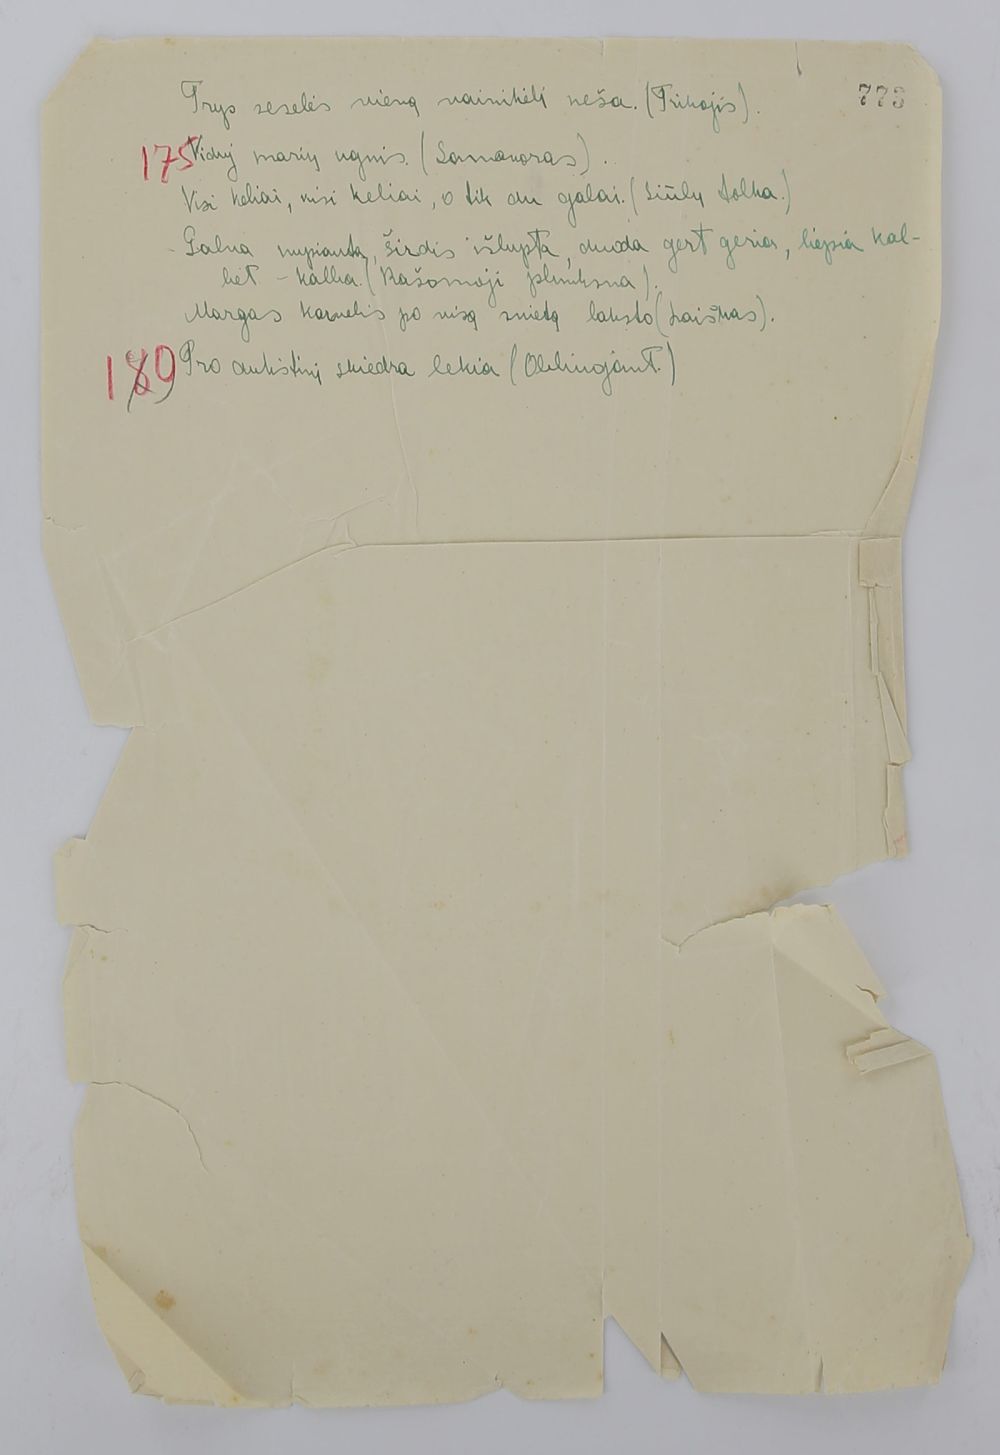 773
Trys seselės vieną vainikėlį neša. (Trikojis).
175 Viduj marių ugnis. (Samovoras).
Visi keliai, visi keliai, o tik du galai. (Siūlų tolka.)
Galva nupiauta, širdis išlupta, duoda gert geria, liepia kal-
bėt - kalba. (Rašomoji plunksna).
Margas karvelis po visą svietą laksto (Laiškas).
180 Pro aukštinį skiedra lekia